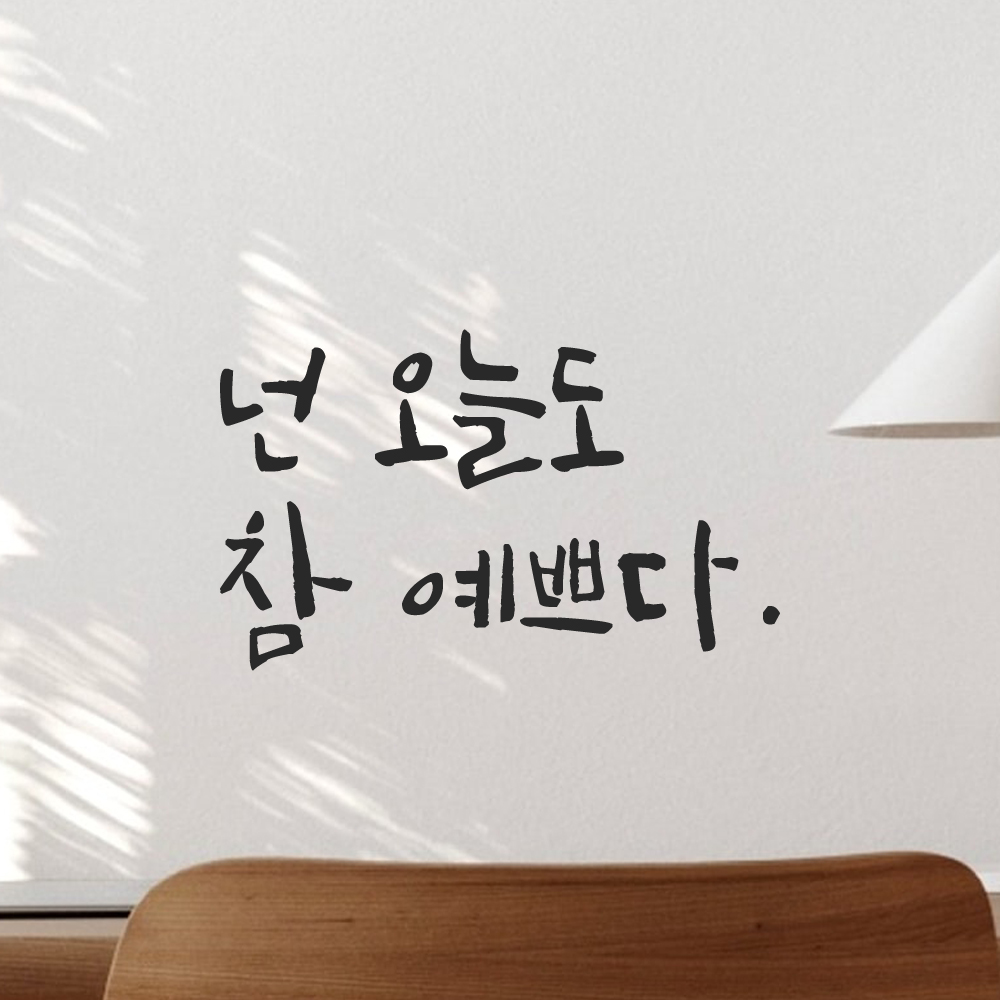 넌 오늘도
참 예쁘다.